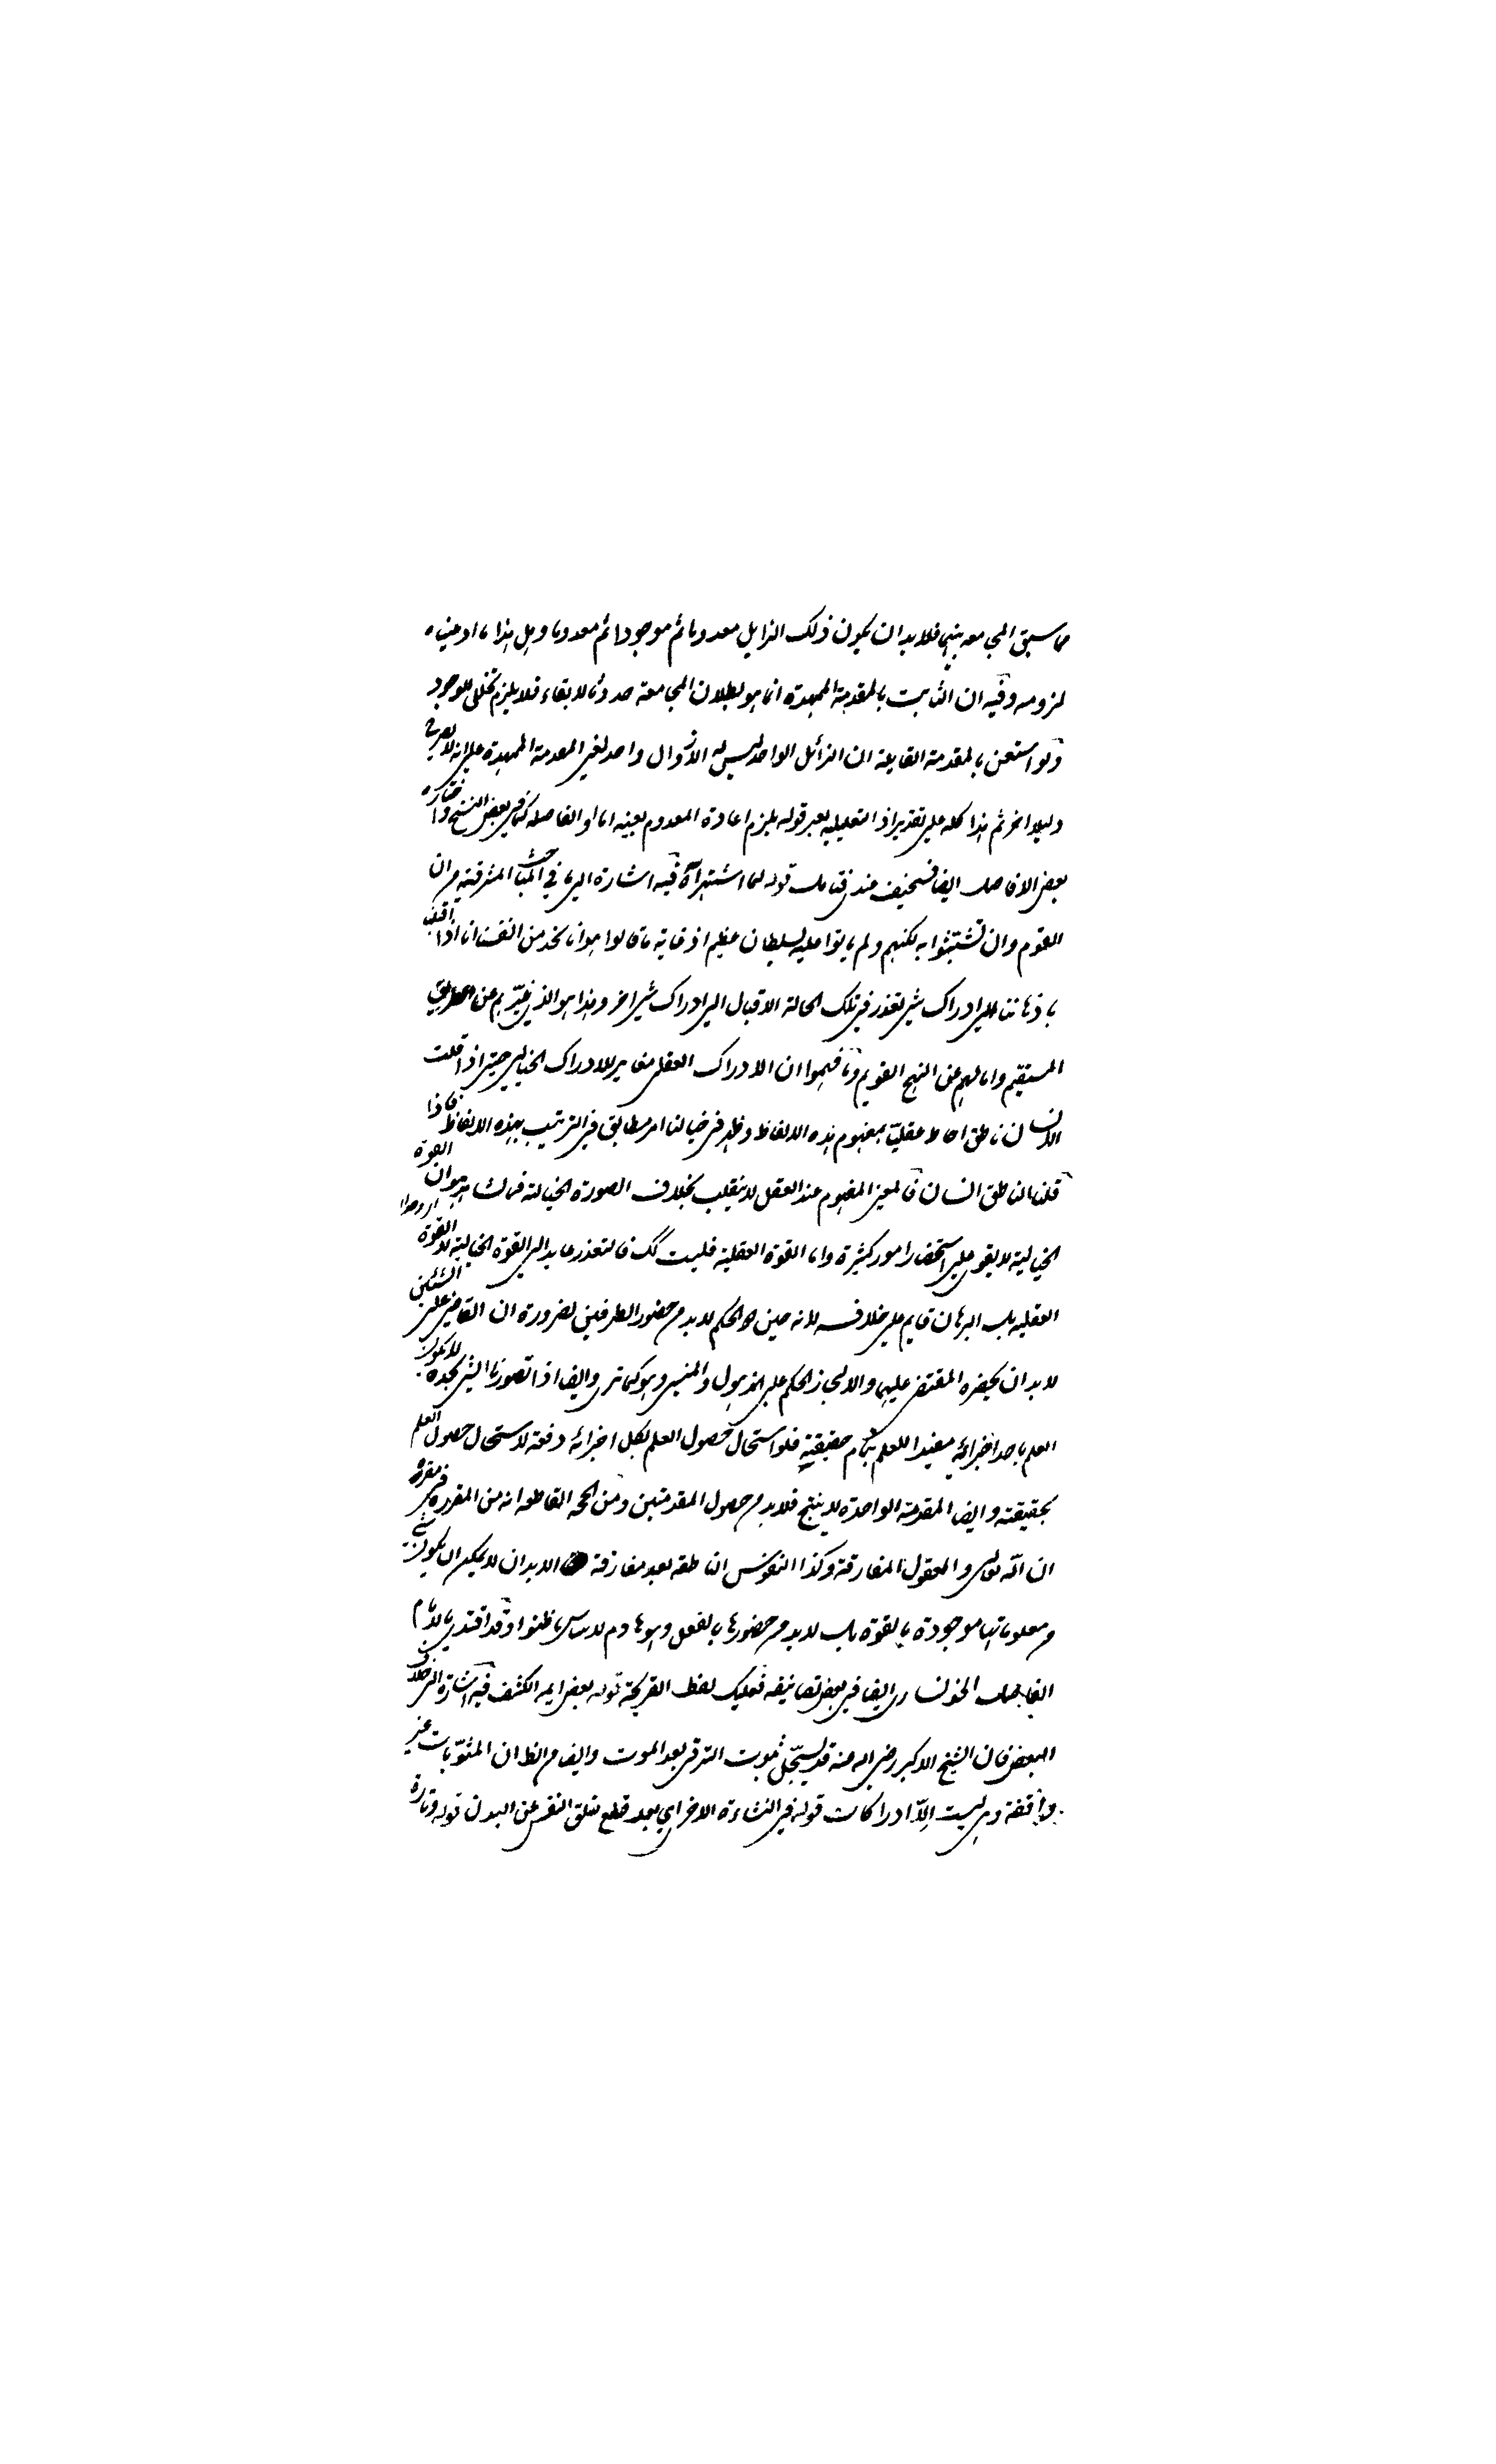 مما سبق المجامعه بينها فلا بد ان يكون ذلك الزايل معدوما ثم موجودا ثم معدوما وهل هذا ما ادعيناه
لزومه وفيه ان الثابت بالمقدمة الممهدة انما هو لبطلان المجامعة حدوثا لا بقاء فلا يلزم تخلل الوجود
ولو استعن بالمقدمة القايلة ان الزائل الواحد ليس له الا زوال واحد لغى المقدمة الممهدة على انه لا يصير
دليلا اخر ثم هذا كله على تقدير اذ التعليليه بعد قوله يلزم اعادة المعدوم بعينه اما او الفاصله كما في بعض النسخ واختاره
بعض الافاضل ايضا فسخيف عند قوله لما اشتهر آه فيه اشارة الى ما في المباحث المشرقية من ان
القوم وان تشبثوا به لكنهم لم ياتوا عليه بسلطان عظيم اذ غاية ما قالوا هو انا نجد من انفسنا انا اذا اقبلنا
باذهاننا الى ادراك شئ تعذر في تلك الحالة الاقبال الى ادراك شئ اخر وهذا هو الذي غيرهم عن الطريق
المستقيم وامالهم عن النهج القويم وما فهموا ان الادراك العقلي مغاير للادراك الخيالي حتى اذا قلت
الانسان ناطق احاط عقلنا بمفهوم هذه الالفاظ وظهر في خيالنا امر مطابق في الترتيب بهذه الالفاظ فاذا
قلنا الناطق انسان فالمعنى المفهوم عند العقل لا ينقلب بخلاف الصورة الخيالية هو ان القوة
الخيالية لا يقوى على استحضار امور كثيرة واما القوة العقلية فليست كك فالتعذر عايد الى القوة الخيالية لا القوة
العقليه بل البرهان قايم على خلافه لانه حين الحكم لا بد من حضور الطرفين لضرورة ان القاضي على الشيئين
لا بد ان يحضره المقتضى عليهما والا لجاز الحكم على المذهول والمنسي وهو كما ترى وايضا اذا تصورنا الشئ بحده لا يكون
العلم باحد اجزائه مفيدا للعلم بتمام حقيقته فلو استحال حصول العلم بكل اجزائه دفعة لاستحال حصول العلم
بحقيقته وايضا المقدمة الواحدة لا ينتج فلا بد من حصول المقدمتين ومن الحجة القاطعه انه من المقرر في مقره
ان الله تعالى والعقول المفارقة وكذا النفوس الناطقه بعد مفارقة الابدان لا يمكن ان يكون شئ
من معلوماتها موجودة بالقوة بل لا بد من حضورها بالفعل وهو هادم لاساس ما ظنوا وقد اقتدى بالامام
الفاضل الخونساري ايضا في بعض تصانيفه فعليك بلفظ القريحة قوله بعض ايمه الكشف فيه اشارة الى خلاف
البعض فان الشيخ الاكبر رضي الله عنه قد يسجل ثبوت الترقي بعد الموت وايضا من الظ ان المثوبات غير
واقفة وهي ليست الا ادراكات قوله في النشاءة الاخرى اي بعد قطع تعلق النفس عن البدن قوله وتارة